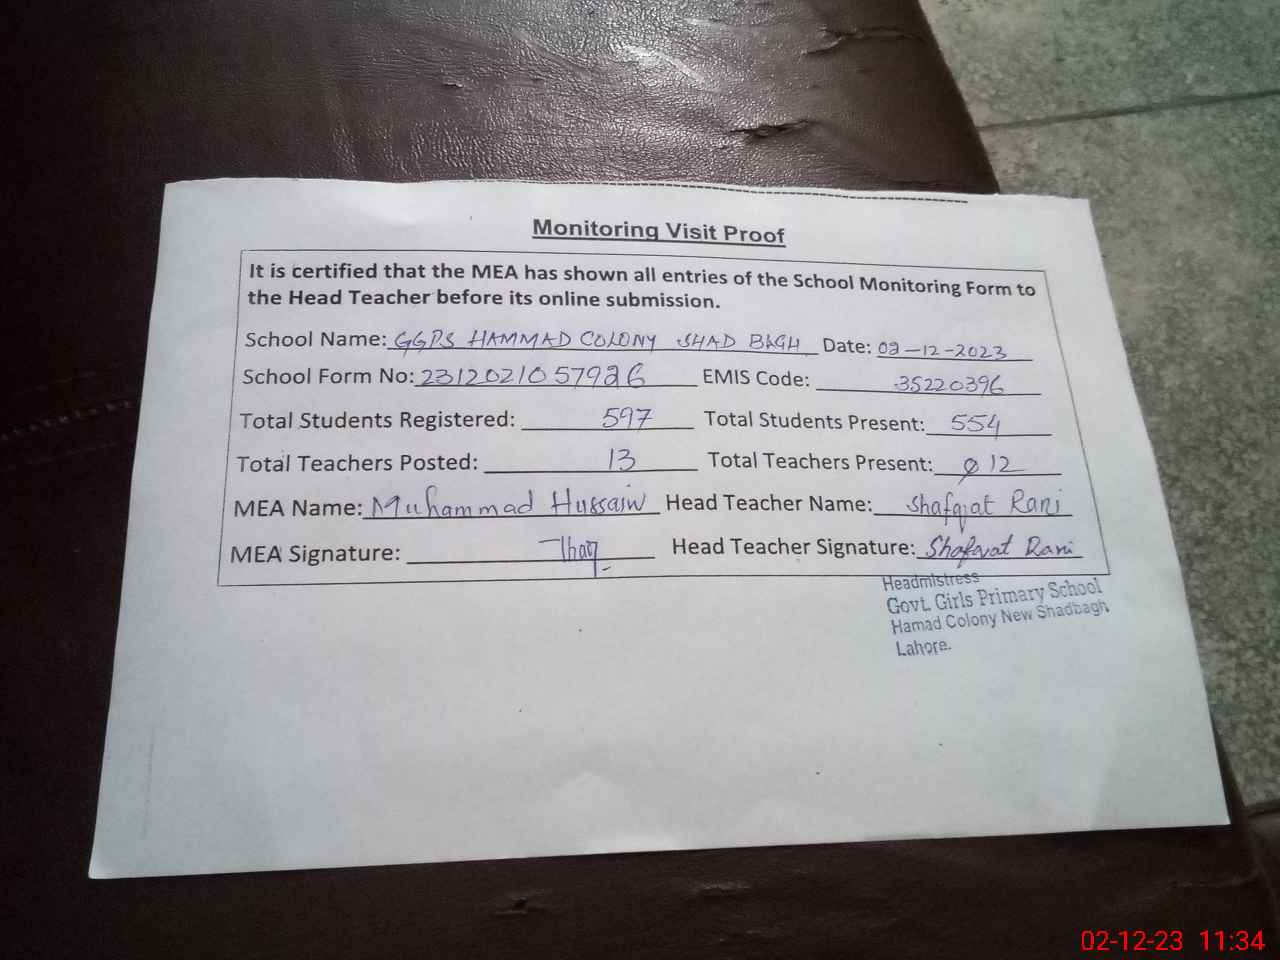 Monitoring Visit Proof
It is certified that the MEA has shown all entries of the School Monitoring Form to
the Head Teacher before its online submission.
School Name: GGPS HAMMAD COLONY SHAD BAGH Date: 02-12-2023
School Form No: 2312021057926 EMIS Code: 35220396
Total Students Registered: 597 Total Students Present: 554
Total Teachers Posted: 13 Total Teachers Present: 12
MEA Name: Muhammad Hussain Head Teacher Name: Shafqat Rani
MEA Signature: Head Teacher Signature: Shafqat Rani
Headmistress
Govt. Girls Primary School
Hamad Colony New Shadbagh
Lahore.
02-12-23 11:34